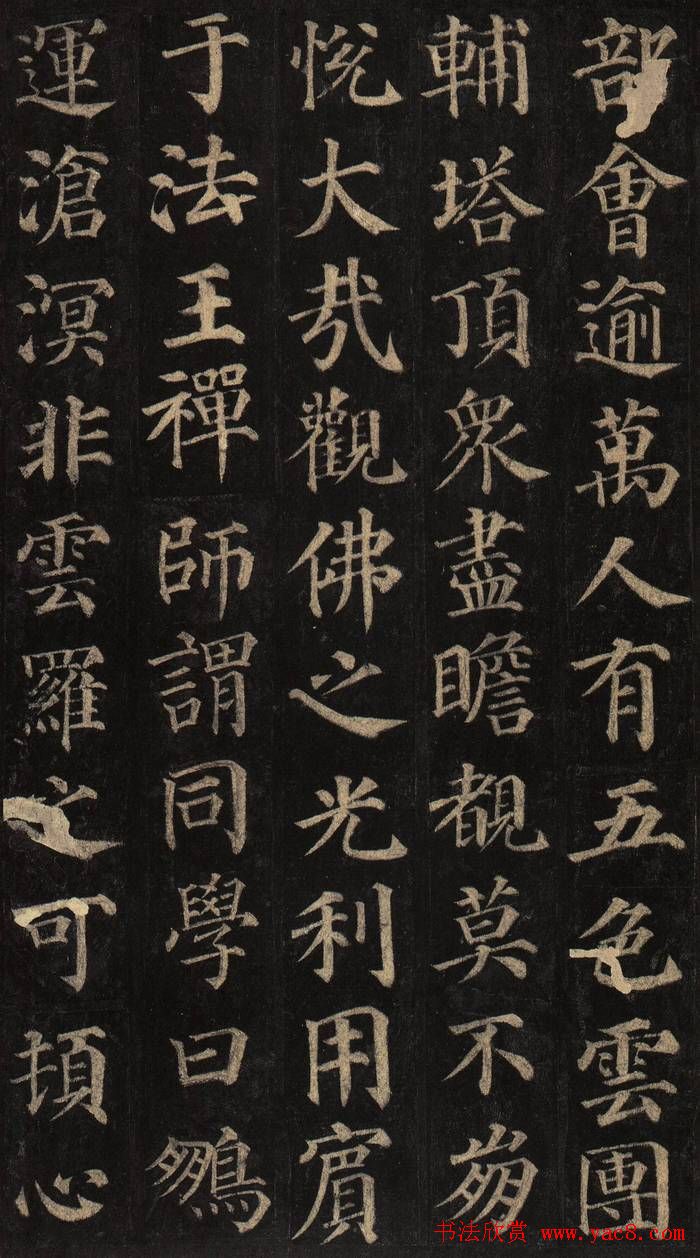 部會逾萬人有五色雲團
輔塔頂眾盡瞻覩莫不崩
悅大哉觀佛之光利用賓
于法王禪師謂同學曰鵬
運滄溟非雲羅之可頓心
书法欣赏 www.yac8.com